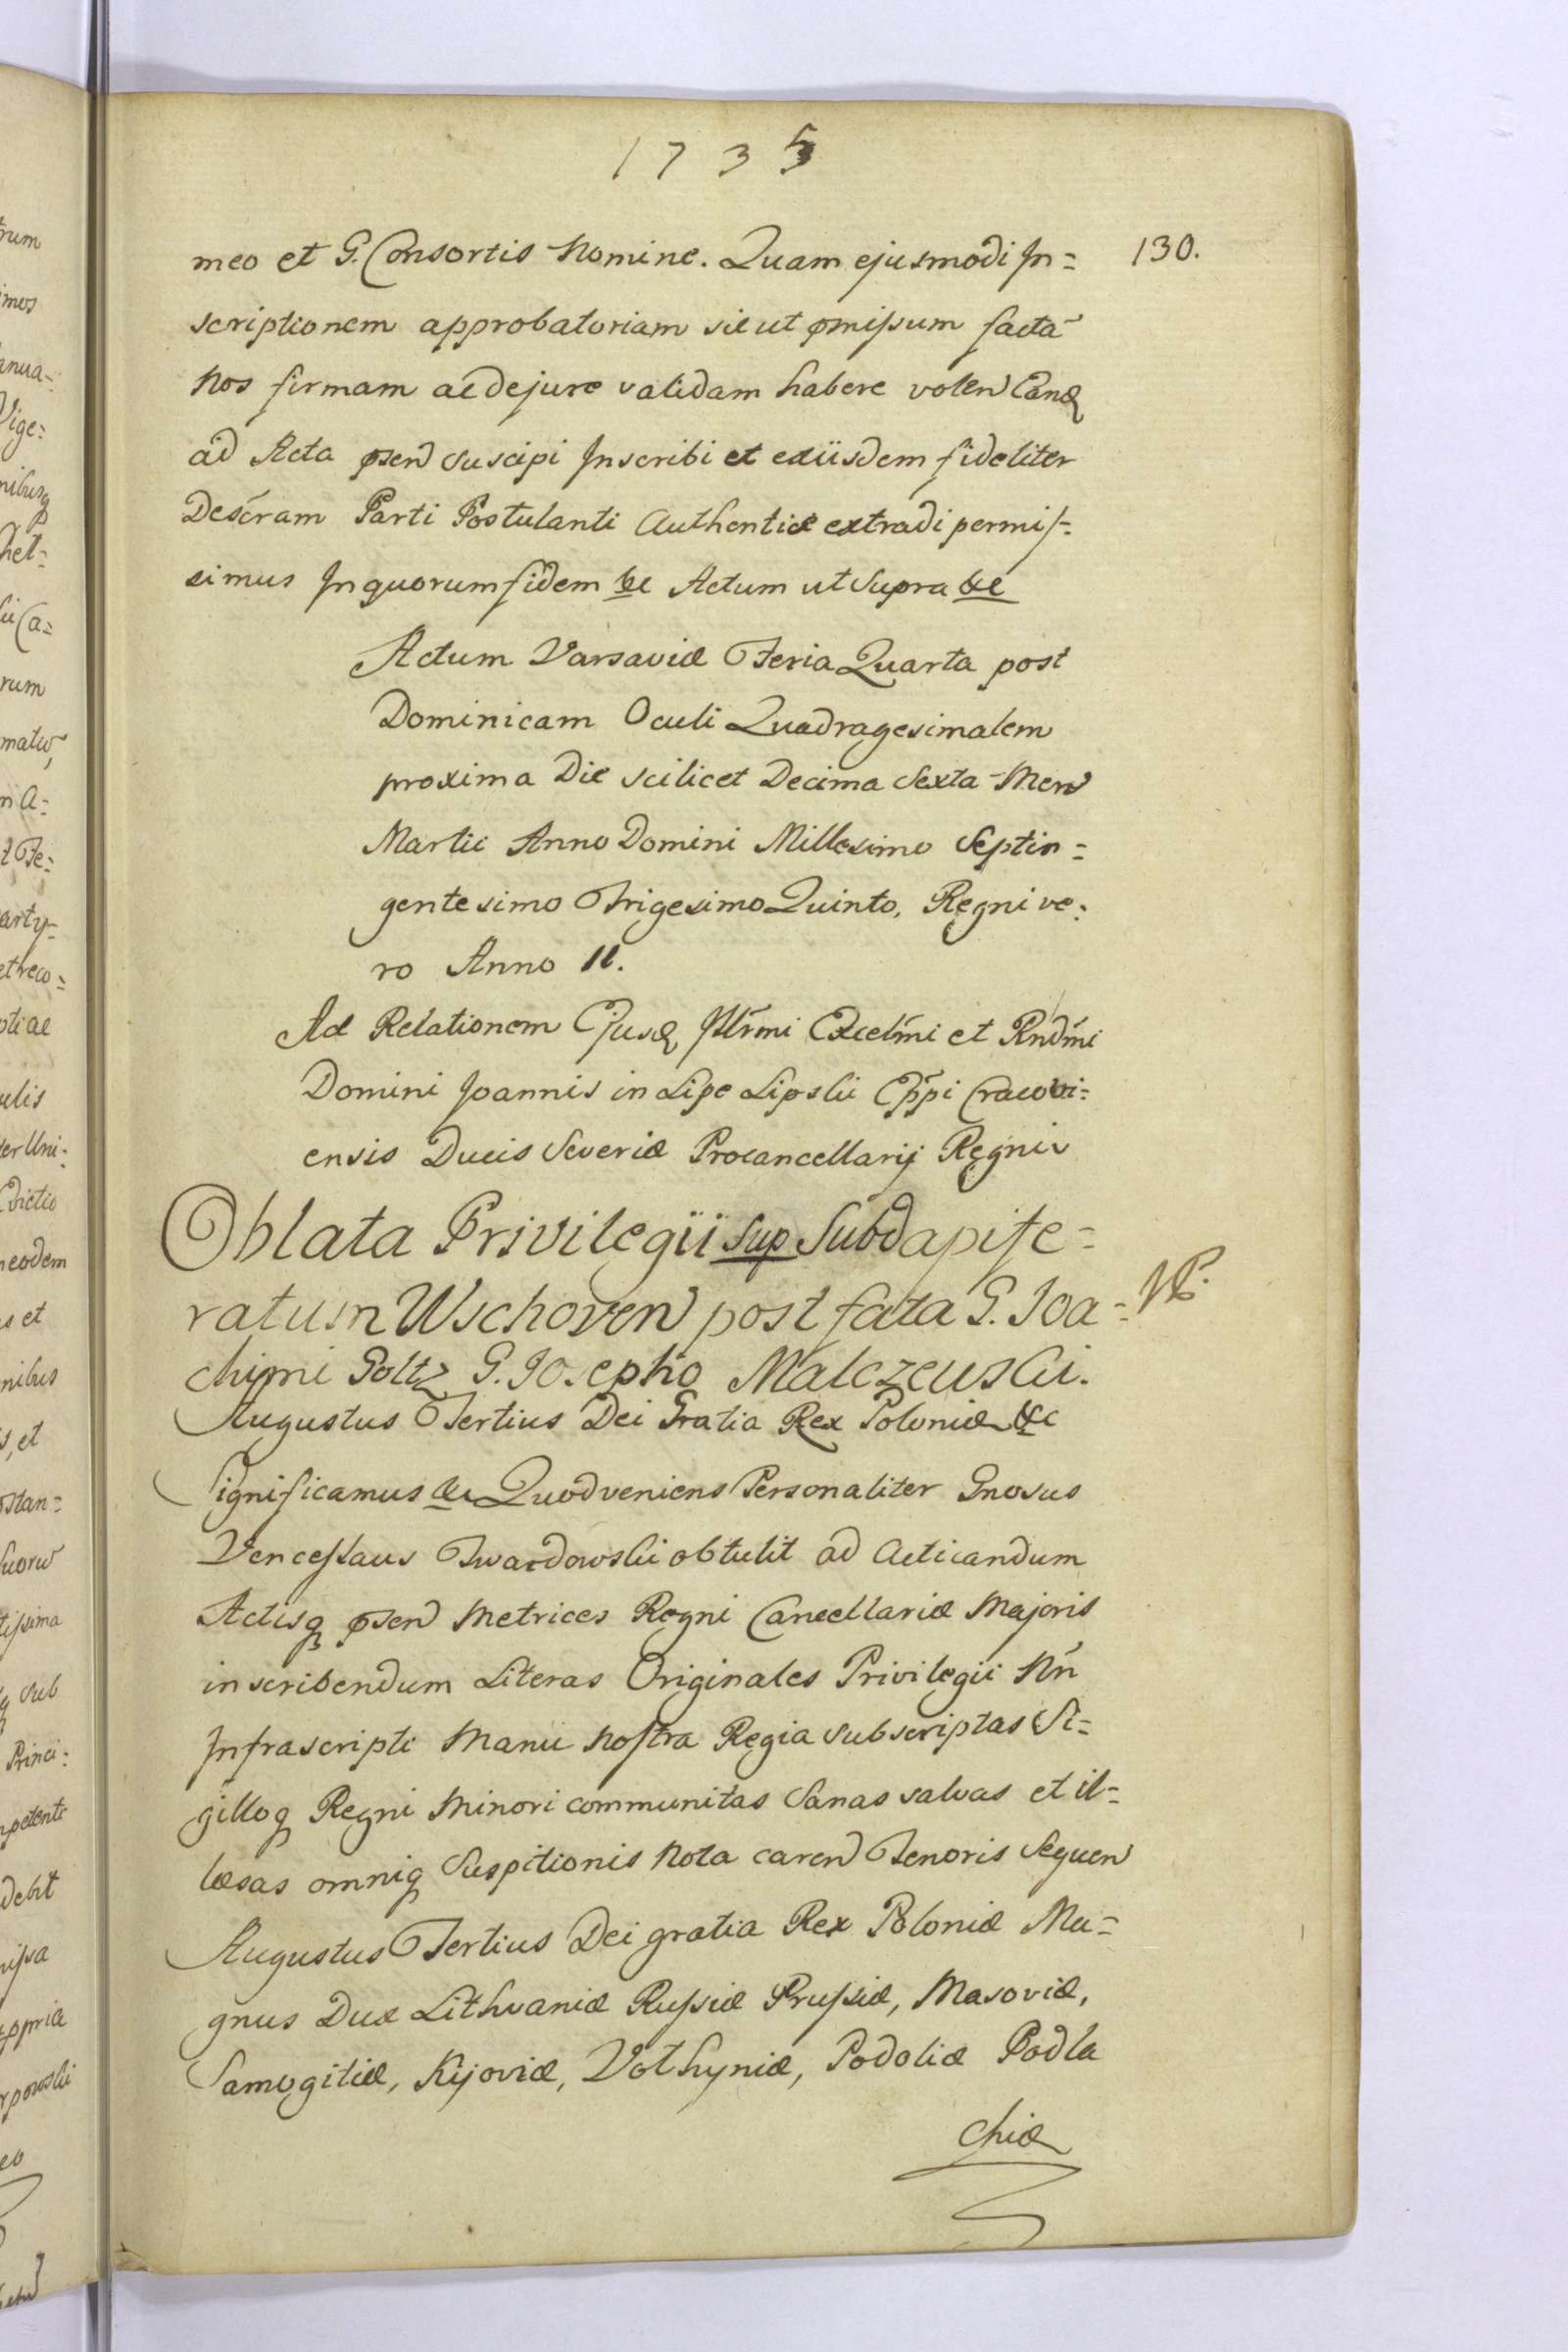 1735
130.
meo et G. Consortis Nomine. Quam ejusmodi In=
scriptionem approbatoriam sicut pmissum factā
Nos firmam ac de jure validam habere volen Eandq
ad Acta psen suscipi Inscribi et exiisdem fideliter
Descram Parti Postulanti Authentice extradi permis=
simus In quorum fidem &c Actum ut Supra &c
Actum Varsaviæ Feria Quarta post
Dominicam Oculi Quadragesimalem
proxima Die scilicet Decima Sexta Men
Martii Anno Domini Millesimo Septin=
gentesimo Trigesimo Quinto, Regni ve=
ro Anno II.
Ad Relationem Ejusd Illrmi Excelmi et Rndmi
Domini Joannis in Lipe Lipski Eppi Cracovi=
ensis Ducis Severiæ Procancellarij Regni
Oblata Privilegii sup Subdapife=
ratum Wschoven post fata G. Joa=
chimi Goltz G. Josepho Malczewski.
Augustus Tertius Dei Gratia Rex Poloniæ &c
Significamus &c Quod veniens Personaliter Gnosus
Venceslaus Twardowski obtulit ad Acticandum
Actisq psen Metrices Regni Cancellariæ Majoris
inscribendum Literas Originales Privilegii Nri
Infrascripti Manu Nostra Regia subscriptas Si=
gilloq Regni Minori communitas Sanas salvas et il=
læsas omniq Suspitionis Nota caren Tenoris Sequen
Augustus Tertius Dei gratia Rex Poloniæ Ma=
gnus Dux Lithvaniæ Russiæ Prussiæ, Masoviæ,
Samogitiæ, Kijoviæ, Volhyniæ, Podoliæ Podla
chiæ